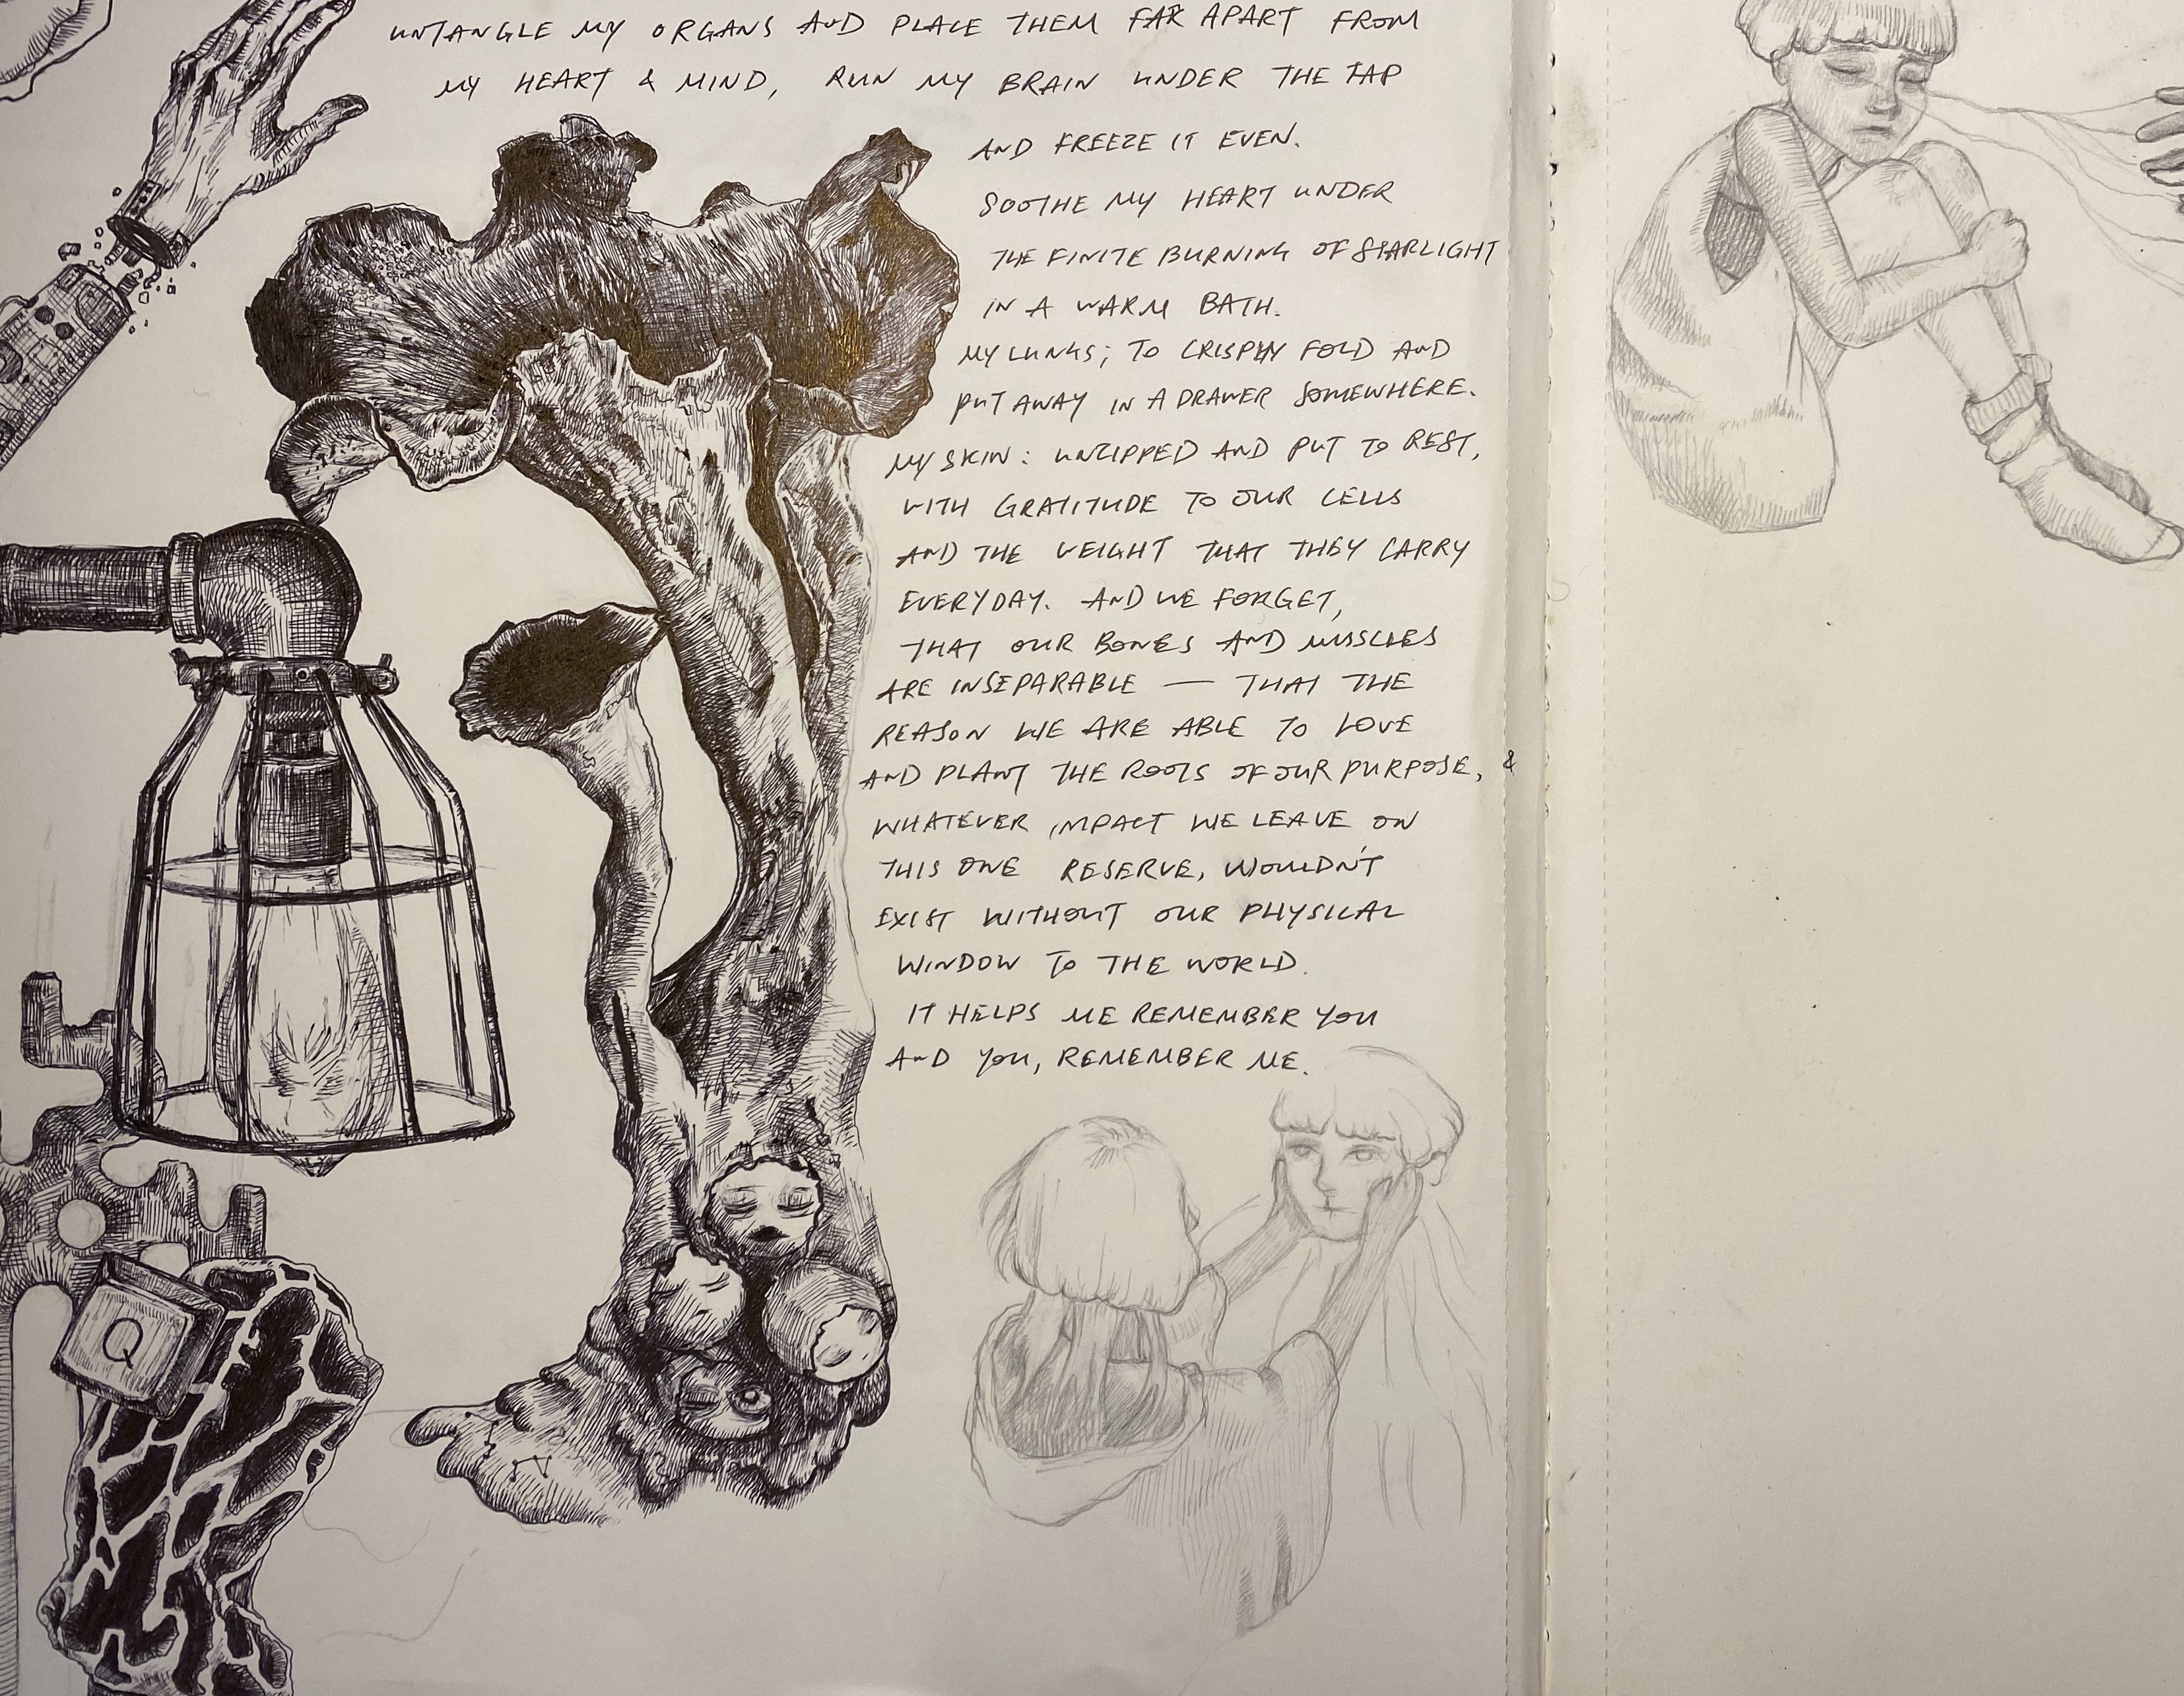 UNTANGLE MY ORGANS AND PLACE THEM FAR APART FROM
MY HEART & MIND, RUN MY BRAIN UNDER THE TAP
AND FREEZE IT EVEN.
SOOTHE MY HEART UNDER
THE FINITE BURNING OF STARLIGHT
IN A WARM BATH.
MY LUNGS; TO CRISPLY FOLD AND
PUT AWAY IN A DRAWER SOMEWHERE.
MY SKIN: UNZIPPED AND PUT TO REST,
WITH GRATITUDE TO OUR CELLS
AND THE WEIGHT THAT THEY CARRY
EVERYDAY. AND WE FORGET,
THAT OUR BONES AND MUSCLES
ARE INSEPARABLE — THAT THE
REASON WE ARE ABLE TO LOVE
AND PLANT THE ROOTS OF OUR PURPOSE, &
WHATEVER IMPACT WE LEAVE ON
THIS ONE RESERVE, WOULDN'T
EXIST WITHOUT OUR PHYSICAL
WINDOW TO THE WORLD.
IT HELPS ME REMEMBER YOU
AND YOU, REMEMBER ME.
Q